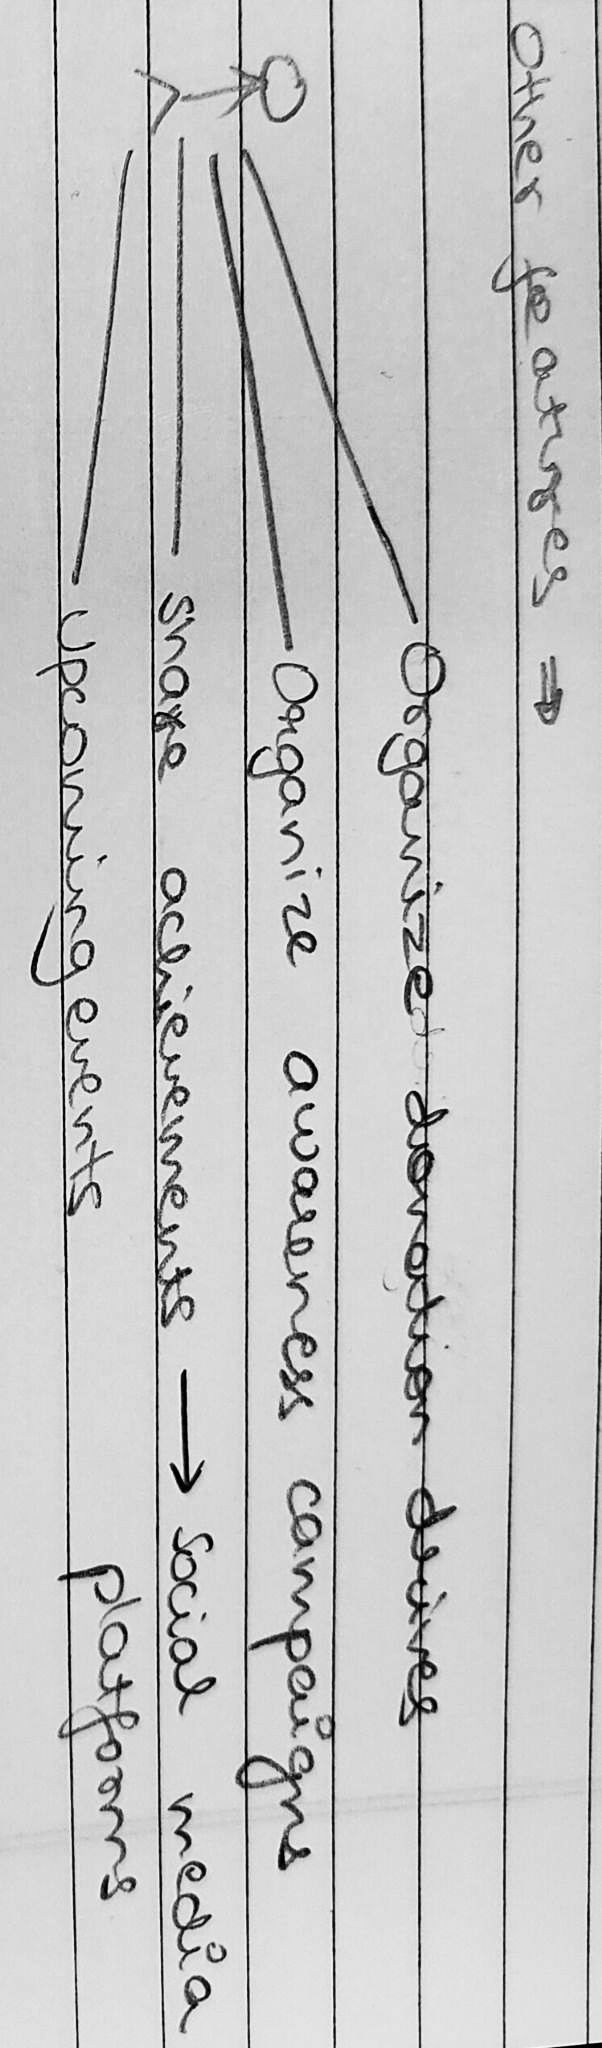 Other features ⇒
Organized donation drives
Organize awareness campaigns
Share achievements → Social media
platforms
Upcoming events